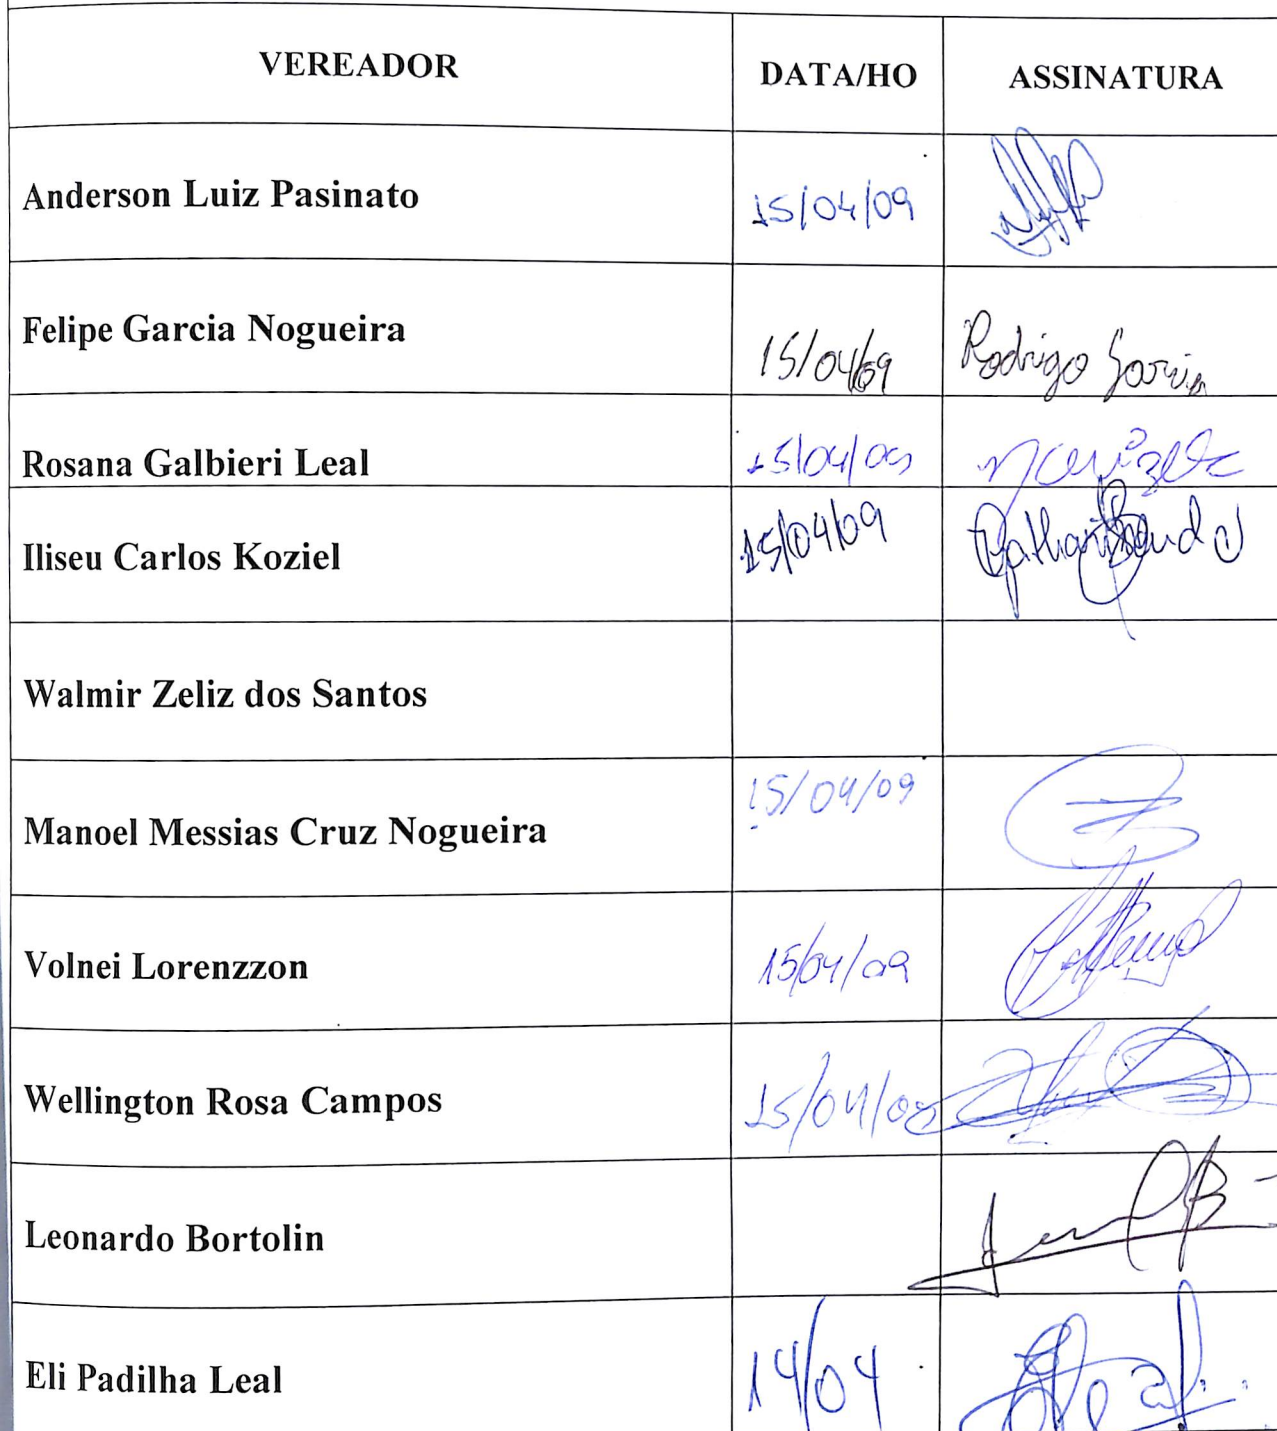 VEREADOR DATA/HO ASSINATURA
Anderson Luiz Pasinato 15/04/09
Felipe Garcia Nogueira 15/04/09 Rodrigo Garcia
Rosana Galbieri Leal 15/04/09
Iliseu Carlos Koziel 15/04/09
Walmir Zeliz dos Santos
Manoel Messias Cruz Nogueira 15/04/09
Volnei Lorenzzon 15/04/09
Wellington Rosa Campos 15/04/09
Leonardo Bortolin
Eli Padilha Leal 14/04